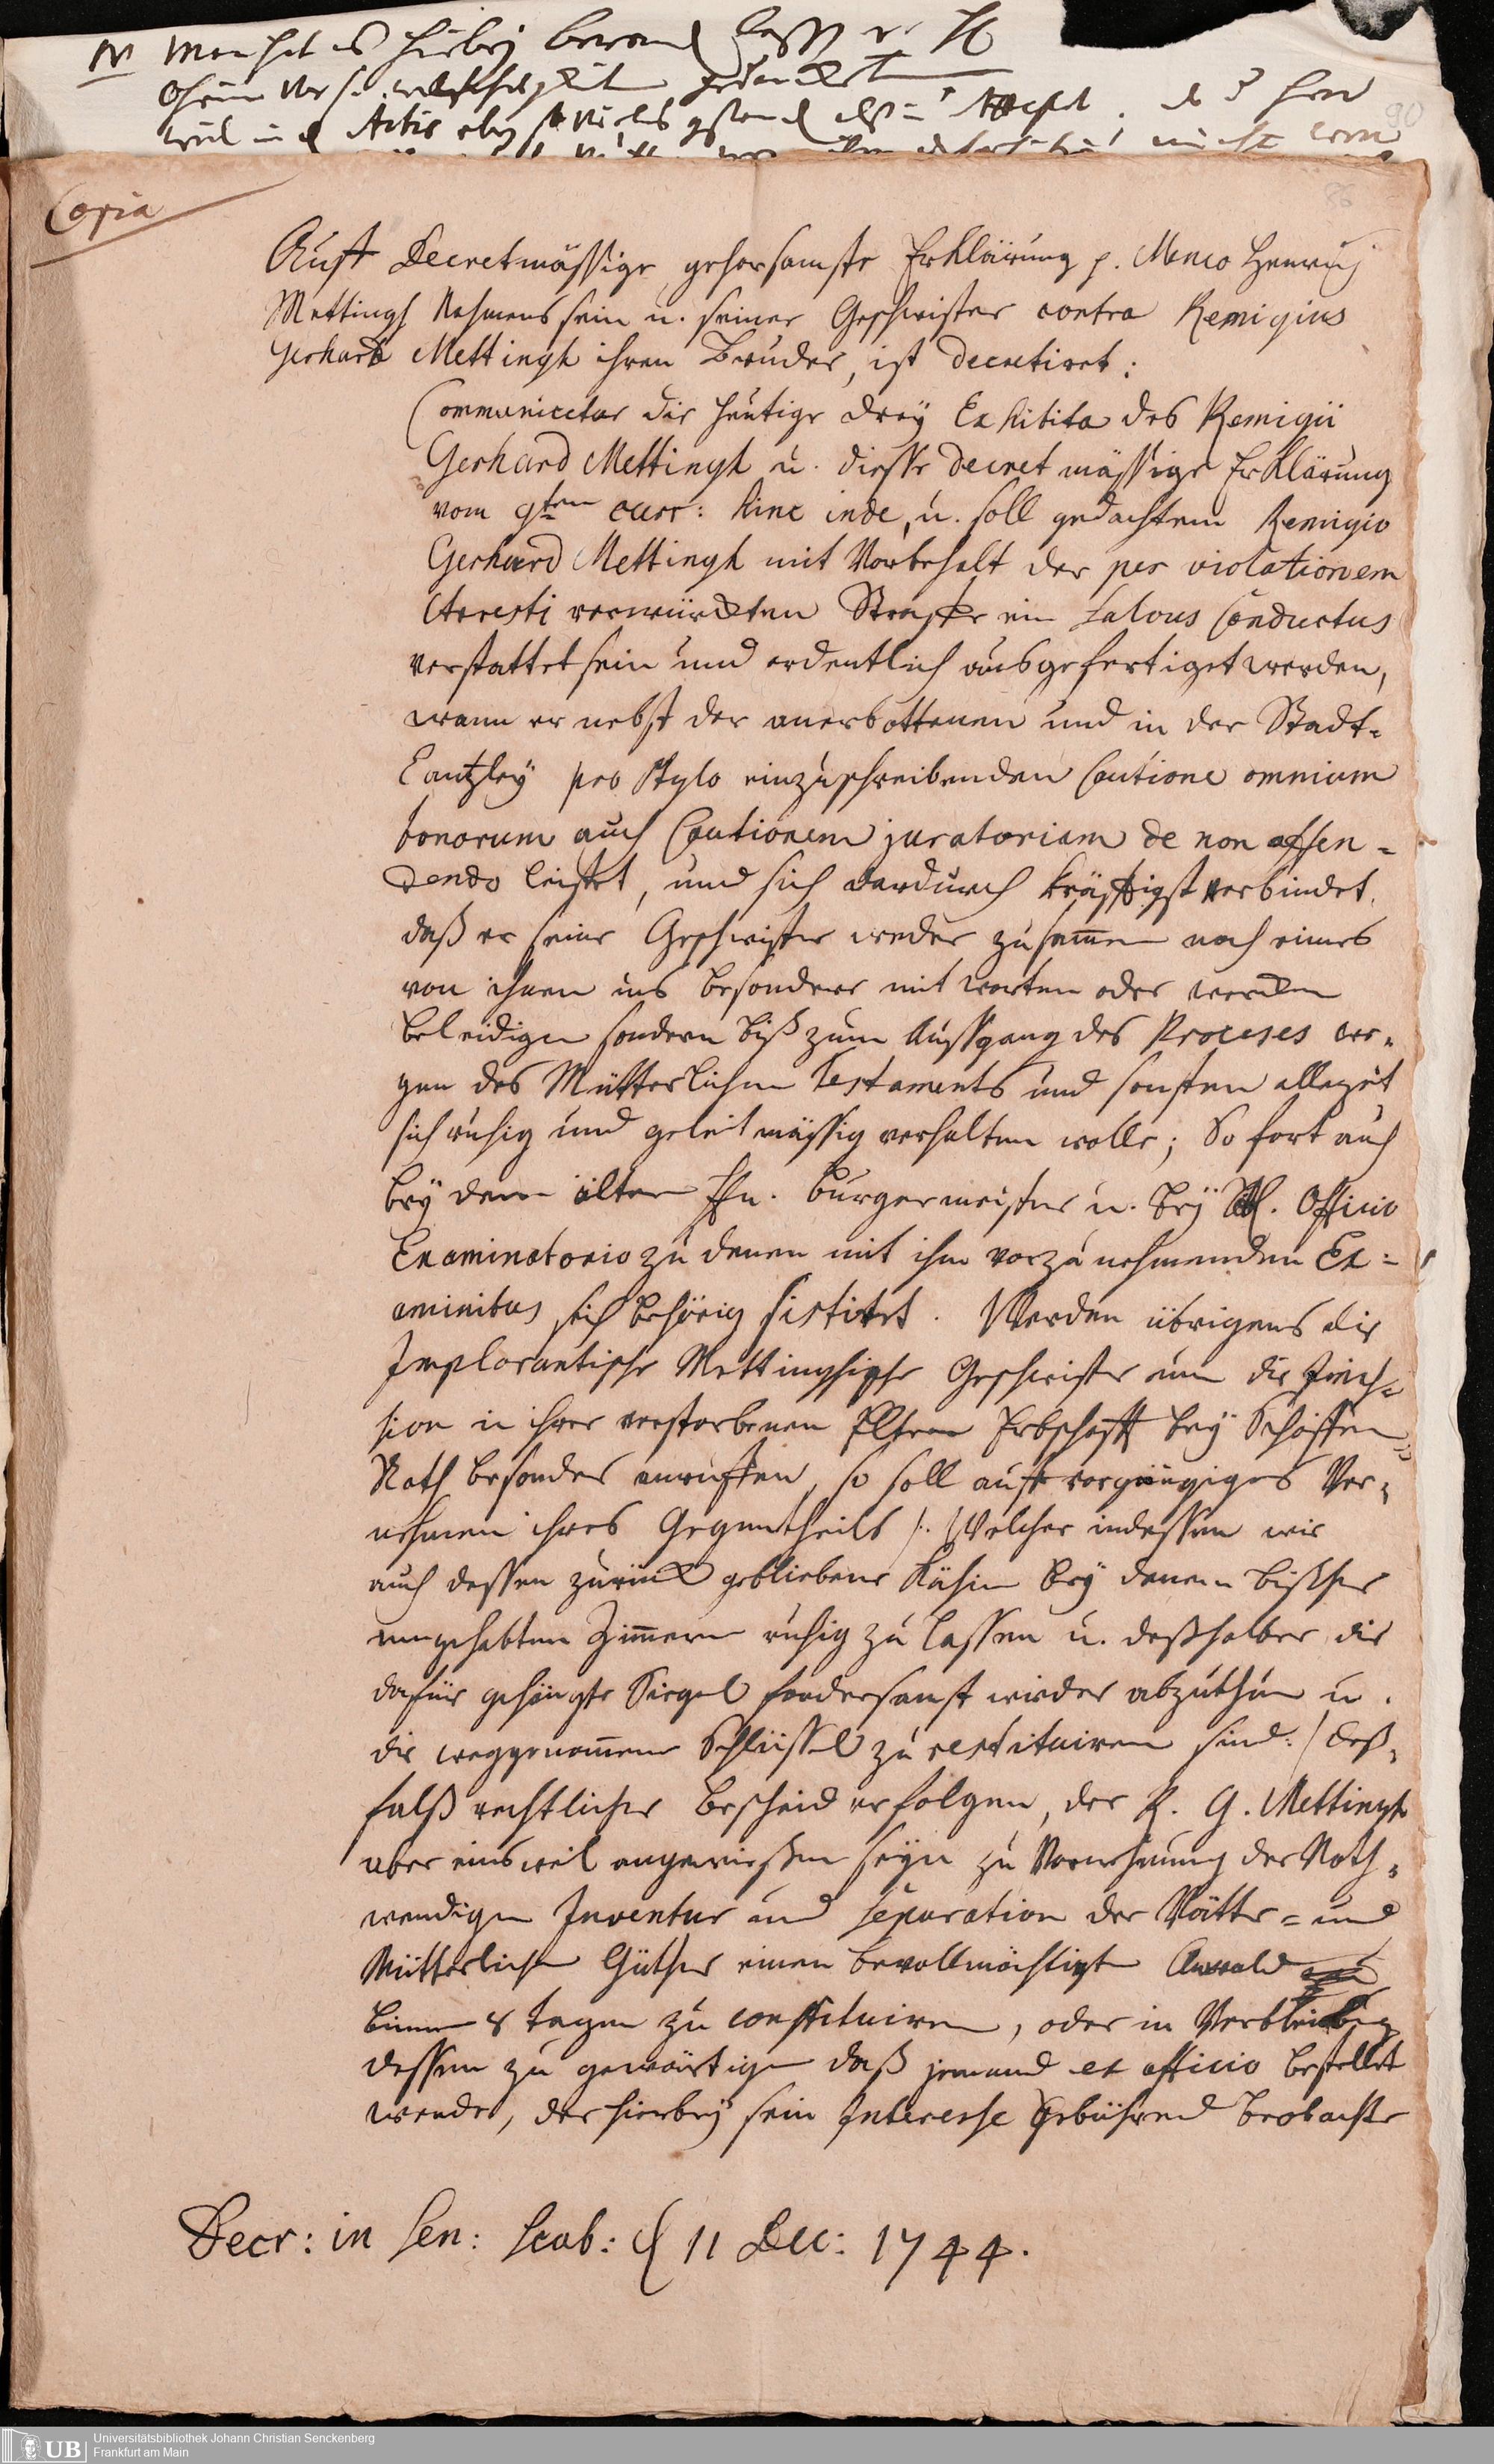 90
86
Copia
Auff Decretmässige gehorsamste Erklärung p. Menco Henrich
Mettingh Nahmens sein u. seiner Geschwister contra Remigius
Gerhard Mettingh ihren Bruder, ist decretiret:
Communicetur die heutige drey Exhibita des Remigii
Gerhard Mettingh u. diesse decretmässige Erklärung
vom 9ten curr: hinc inde, u. soll gedachtem Remigio
Gerhard Mettingh mit Vorbehalt der per violationem
Arresti verwürckten Straffe ein Salvus Conductus
verstattet sein und ordentlich ausgefertiget werden,
wann er nebst der anerbottenen und in der Stadt=
Cantzley pro stylo einzuschreibenden Cautione omnium
bonorum auch Cautionem juratoriam de non offen=
dendo leistet, und sich dardurch kräfftigst verbindet,
daß er seine Geschwister weder zusammen noch eines
von ihnen ins besondere mit worten oder wercken
beleidigen sondern biß zum Aussgang des Processes we=
gen des Mütterlichen Testaments und sonsten allezeit
sich ruhig und geleitmässig verhalten wolle; So fort auch
bey dem ältern Hn. Burgermeister u. bey Löbl. Officio
Examinatorio zu denen mit ihm vorzunehmenden Ex=
aminibus sich behörig sistiret. Werden übrigens die
Implorantische Mettinghische Geschwister um die Immis=
sion in ihrer verstorbenen Eltern Erbschafft bey Schöffen=
Rath besonders anruffen, so soll auff vorgängiges Ver=
nehmen ihres Gegentheils /: Welcher indessen wie
auch dessen zurück gebliebene Köchin bey denen bißher
eingehabten Zimmern ruhig zu lassen u. deßhalber die
dafür gehängte Siegel fordersamst wieder abzuthun u.
die weggenommene Schlüssel zu restituiren sind :/ deß=
falß rechtlicher Bescheid erfolgen, der R. G. Mettingh
aber einsweil angewiesen seyn zu Vornehmung der Noth=
wendigen Inventur und Separation der Vätter= und
Mütterlichen Güther einen bevollmächtigten Anwald
binnen 8 tagen zu constituiren, oder in Verbleibung
dessen zu gewärtigen daß jemand ex officio bestellet
werde, der hierbey sein Interesse gebührend beobachte
Decr: in Sen: Scab: d 11 Dec: 1744.
UB
Universitätsbibliothek Johann Christian Senckenberg
Frankfurt am Main